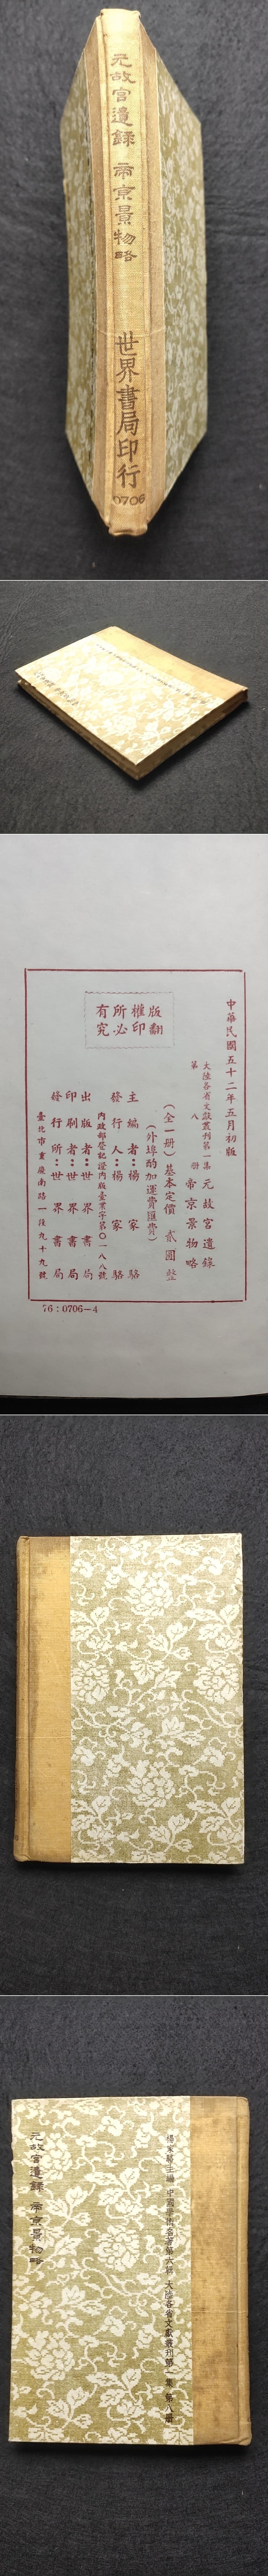 元故宮遺錄 帝京景物略
世界書局印行
0706
中華民國五十二年五月初版
大陸各省文獻叢刊第一集
第八册
元故宮遺錄
帝京景物略
(全一册)基本定價貳圓整
(外埠酌加運費匯費)
主編者:楊家駱
發行人:楊家駱
內政部登記證內版臺業字第〇一八八號
出版者:世界書局
印刷者:世界書局
發行所:世界書局
臺北市重慶南路一段九十九號
版權所有
翻印必究
76:0706-4
楊家駱主編 中國學術名著第六輯 大陸各省文獻叢刊第一集 第八册
元故宮遺錄 帝京景物略